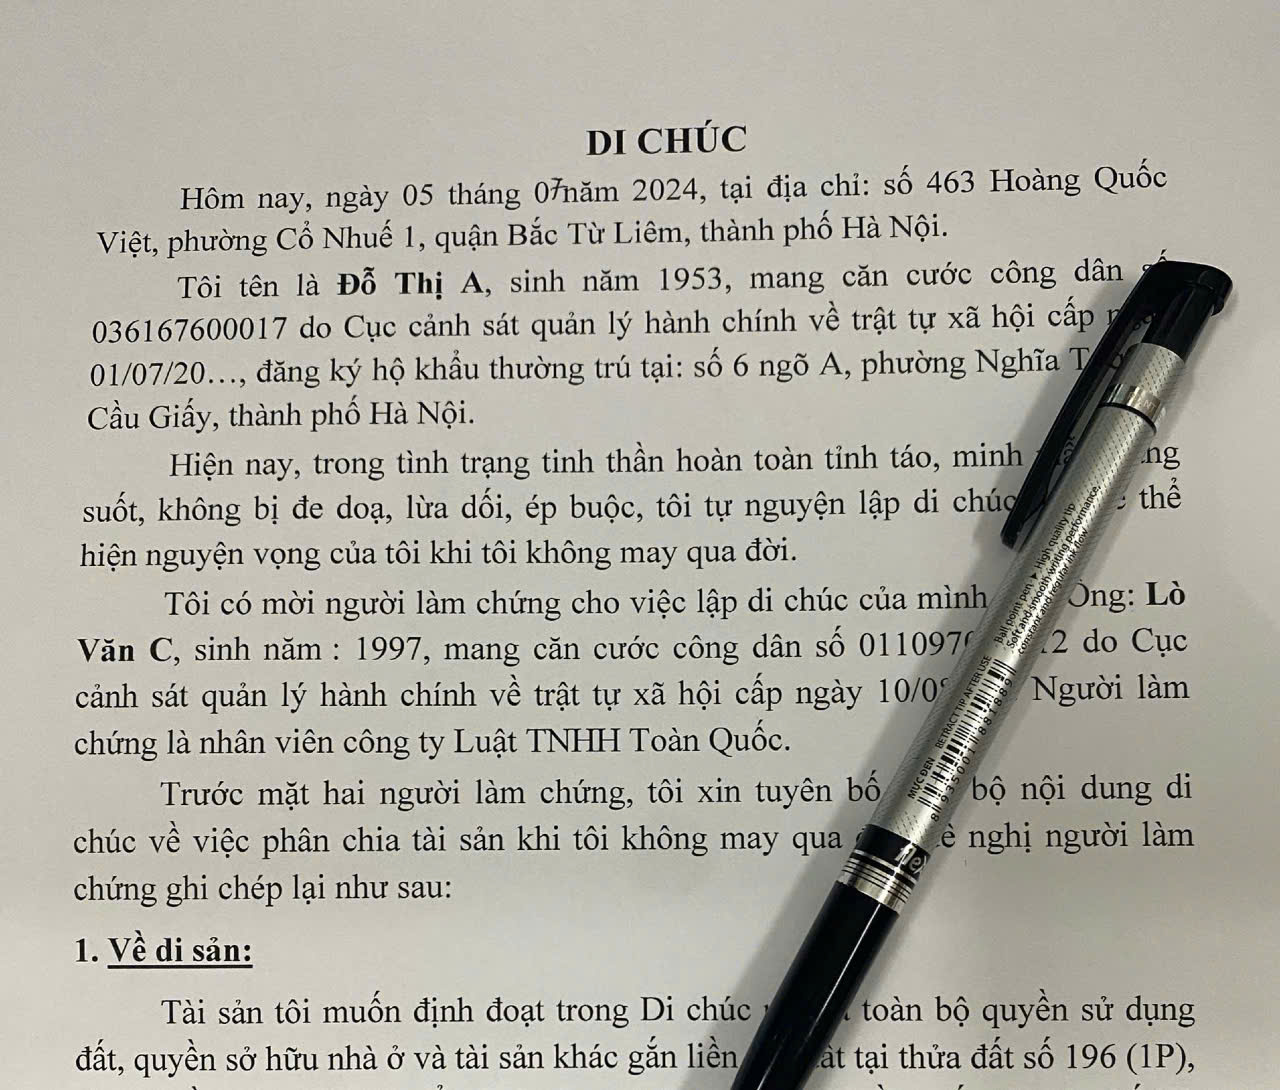 DI CHÚC
Hôm nay, ngày 05 tháng 07 năm 2024, tại địa chỉ: số 463 Hoàng Quốc
Việt, phường Cổ Nhuế 1, quận Bắc Từ Liêm, thành phố Hà Nội.
Tôi tên là Đỗ Thị A, sinh năm 1953, mang căn cước công dân số
036167600017 do Cục cảnh sát quản lý hành chính về trật tự xã hội cấp
01/07/20…, đăng ký hộ khẩu thường trú tại: số 6 ngõ A, phường Nghĩa
Cầu Giấy, thành phố Hà Nội.
Hiện nay, trong tình trạng tinh thần hoàn toàn tỉnh táo, minh
suốt, không bị đe doạ, lừa dối, ép buộc, tôi tự nguyện lập di chúc thể
hiện nguyện vọng của tôi khi tôi không may qua đời.
Tôi có mời người làm chứng cho việc lập di chúc của mình Ông: Lò
Văn C, sinh năm : 1997, mang căn cước công dân số do Cục
cảnh sát quản lý hành chính về trật tự xã hội cấp ngày Người làm
chứng là nhân viên công ty Luật TNHH Toàn Quốc.
Trước mặt hai người làm chứng, tôi xin tuyên bố bộ nội dung di
chúc về việc phân chia tài sản khi tôi không may qua nghị người làm
chứng ghi chép lại như sau:
1. Về di sản:
Tài sản tôi muốn định đoạt trong Di chúc toàn bộ quyền sử dụng
đất, quyền sở hữu nhà ở và tài sản khác gắn liền tại thửa đất số 196 (1P),
Ball point pen ▸ High quality tip
Soft and smooth writing performance.
constant and regular ink flow
MỰC ĐEN RETRACT TIP AFTER USE
8 935001 881889